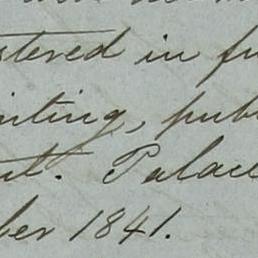 stered in fu
inting, publ
ut. Palace
ber 1841.